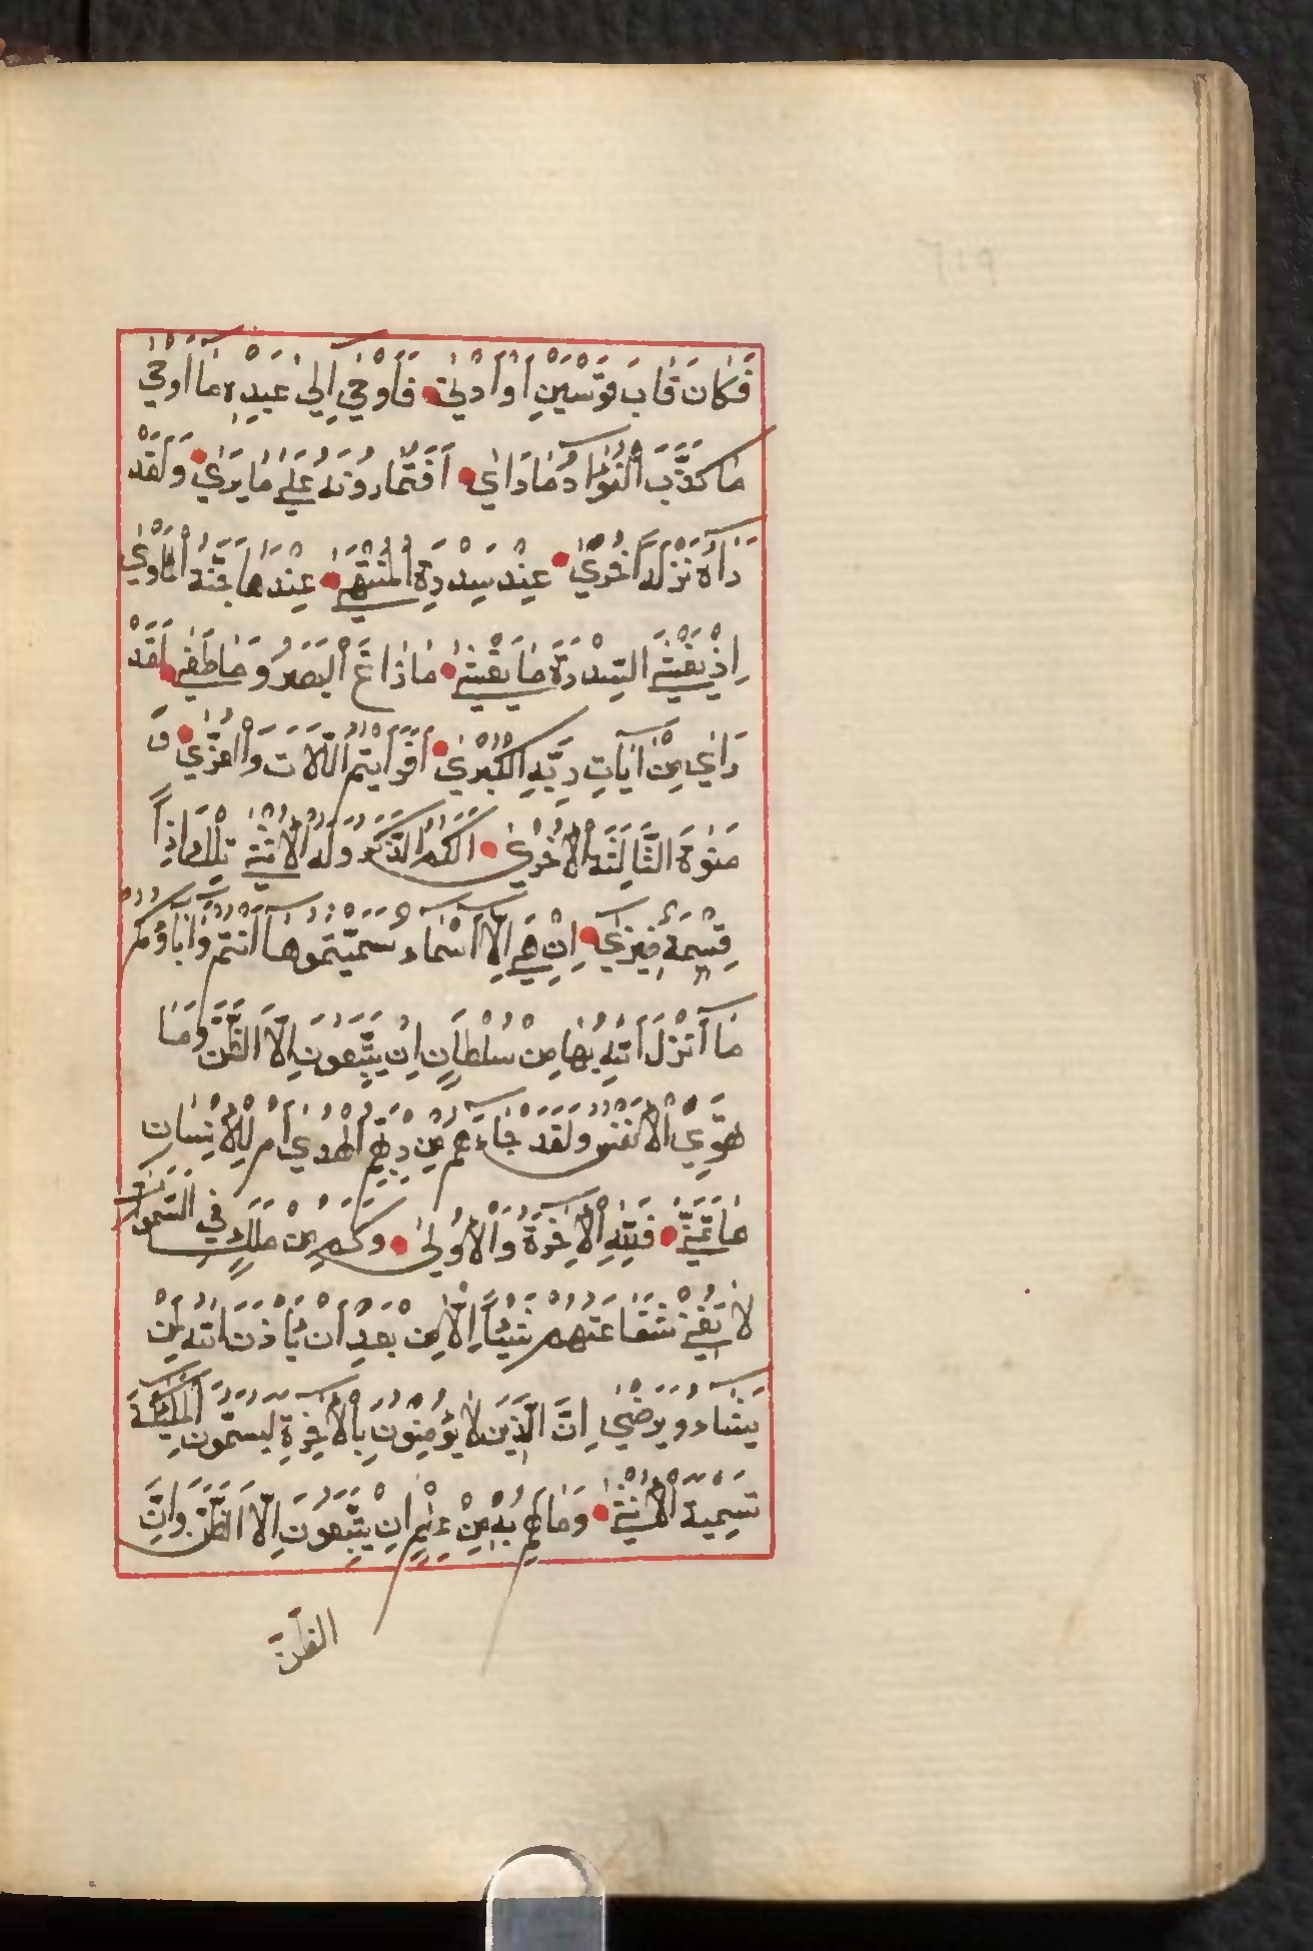 فَكَانَ قَابَ قَوْسَيْنِ اَوْ اَدْنٰى فَاَوْحٰى اِلٰى عَبْدِهٖ مَا اَوْحٰى
مَا كَذَبَ الْفُؤٰادُ مَا رَاٰى اَفَتُمَارُونَهُ عَلٰى مَا يَرٰى وَلَقَدْ
رَاٰهُ نَزْلَةً اُخْرٰى عِنْدَ سِدْرَةِ الْمُنْتَهٰى عِنْدَهَا جَنَّةُ الْمَاْوٰى
اِذْ يَغْشَى السِّدْرَةَ مَا يَغْشٰى مَا زَاغَ الْبَصَرُ وَمَا طَغٰى لَقَدْ
رَاٰى مِنْ اٰيَاتِ رَبِّهِ الْكُبْرٰى اَفَرَاَيْتُمُ اللَّاتَ وَالْعُزّٰى وَ
مَنٰوةَ الثَّالِثَةَ الْاُخْرٰى اَلَكُمُ الذَّكَرُ وَلَهُ الْاُنْثٰى تِلْكَ اِذاً
قِسْمَةٌ ضِيزٰى اِنْ هِيَ اِلَّا اَسْمَاءٌ سَمَّيْتُمُوهَا اَنْتُمْ وَاٰبَاؤُكُمْ
مَا اَنْزَلَ اللّٰهُ بِهَا مِنْ سُلْطَانٍ اِنْ يَتَّبِعُونَ اِلَّا الظَّنَّ وَمَا
تَهْوَى الْاَنْفُسُ وَلَقَدْ جَاءَهُمْ مِنْ رَبِّهِمُ الْهُدٰى اَمْ لِلْاِنْسَانِ
مَا تَمَنّٰى فَلِلّٰهِ الْاٰخِرَةُ وَالْاُولٰى وَكَمْ مِنْ مَلَكٍ فِي السَّمٰوَاتِ
لَا تُغْنِي شَفَاعَتُهُمْ شَيْئاً اِلَّا مِنْ بَعْدِ اَنْ يَاْذَنَ اللّٰهُ لِمَنْ
يَشَاءُ وَيَرْضٰى اِنَّ الَّذِينَ لَا يُؤْمِنُونَ بِالْاٰخِرَةِ لَيُسَمُّونَ الْمَلٰئِكَةَ
تَسْمِيَةَ الْاُنْثٰى وَمَا لَهُمْ بِهٖ مِنْ عِلْمٍ اِنْ يَتَّبِعُونَ اِلَّا الظَّنَّ وَاِنَّ
الظَّنَّ